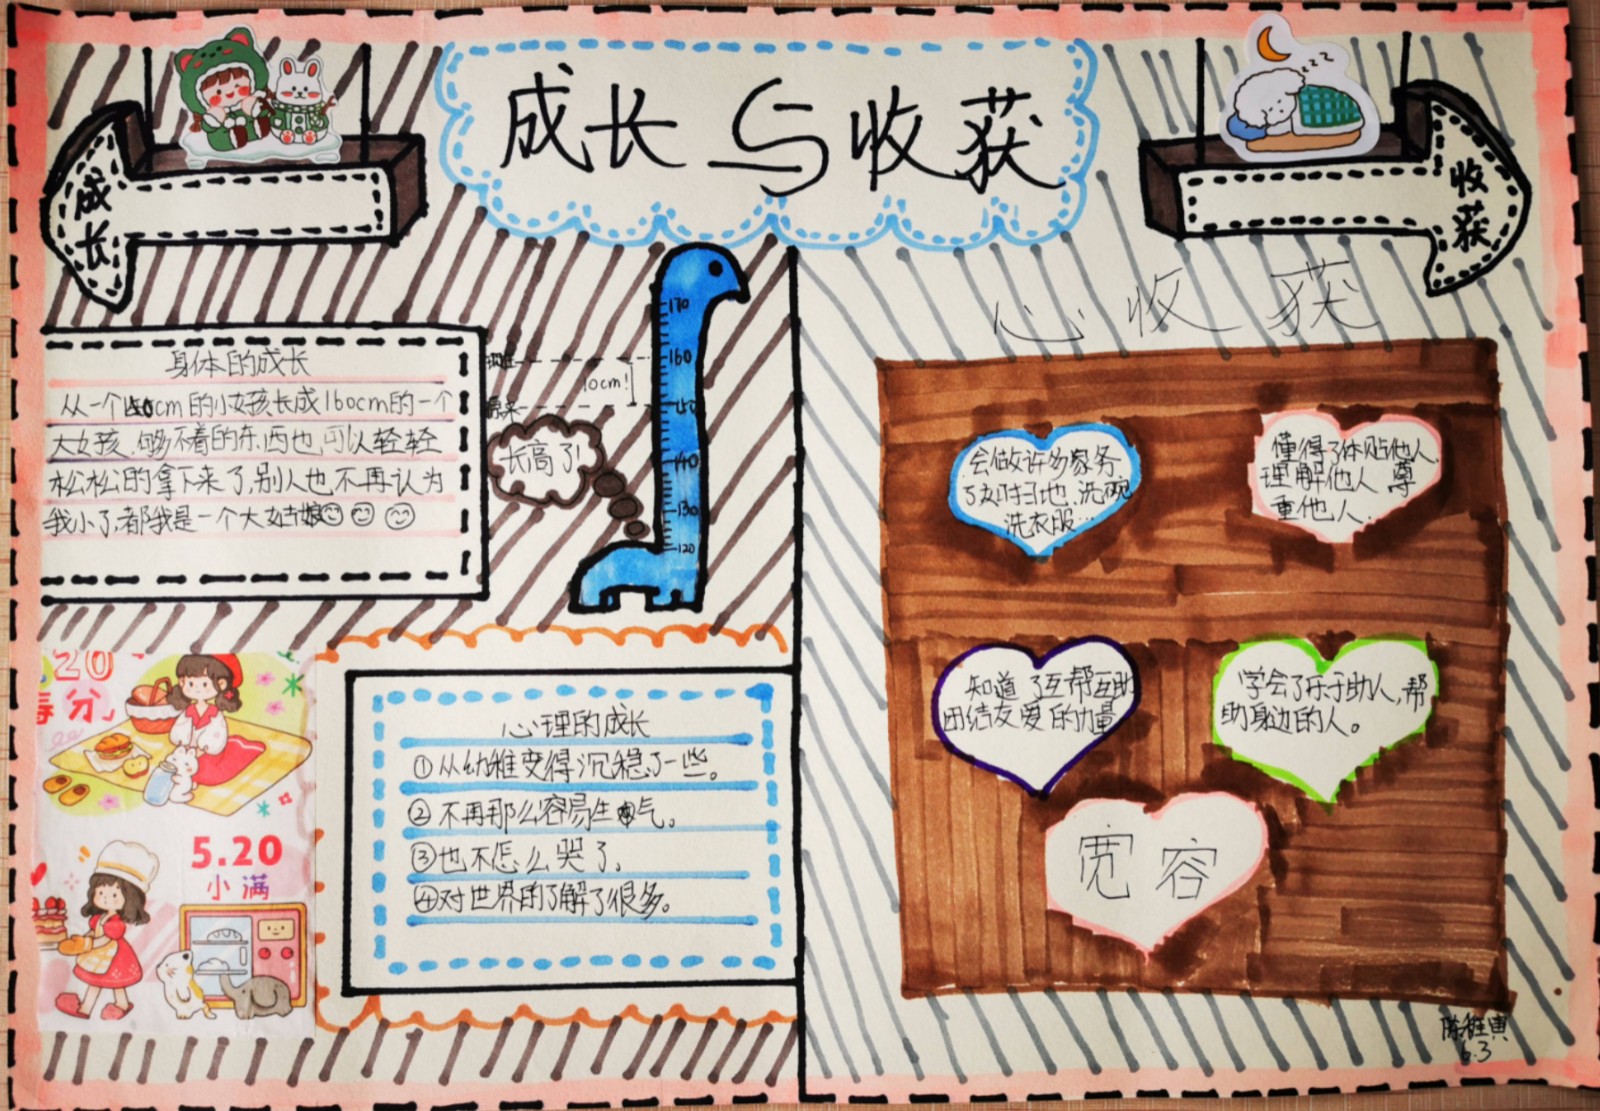 成长与收获
成长
收获
身体的成长
从一个150cm的小女孩长成160cm的一个
大女孩.够不着的东西也可以轻轻
松松的拿下来了,别人也不再认为
我小了,都我是一个大姑娘
现在
原来
10cm!
长高了!
170
160
150
140
130
120
20
春分
5.20
小满
心理的成长
①从幼稚变得沉稳了一些。
②不再那么容易生气。
③也不怎么哭了.
④对世界的了解了很多。
心收获
会做许多家务
了如扫地.洗碗
洗衣服...
懂得了体贴他人
理解他人 尊
重他人.
知道了互帮互助
团结友爱的力量
学会了乐于助人,帮
助身边的人。
宽容
6.3